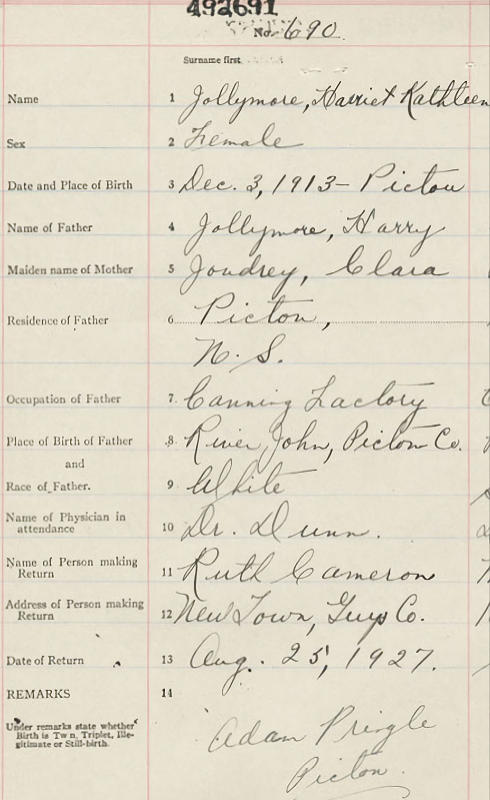 492691
No. 690
Surname first
Name 1 Jollymore, Harriet Kathleen
Sex 2 Female
Date and Place of Birth 3 Dec. 3, 1913 - Pictou
Name of Father 4 Jollymore, Harry
Maiden name of Mother 5 Joudrey, Clara
Residence of Father 6 Pictou,
N. S.
Occupation of Father 7 Canning Factory
Place of Birth of Father 8 River John, Pictou Co.
and
Race of Father. 9 White
Name of Physician in
attendance 10 Dr. Dunn.
Name of Person making
Return 11 Ruth Cameron
Address of Person making
Return 12 New Town, Guys Co.
Date of Return 13 Aug. 25, 1927.
REMARKS 14
Under remarks state whether
Birth is Twin, Triplet, Ille-
gitimate or Still-birth.
Adam Pringle
Pictou.